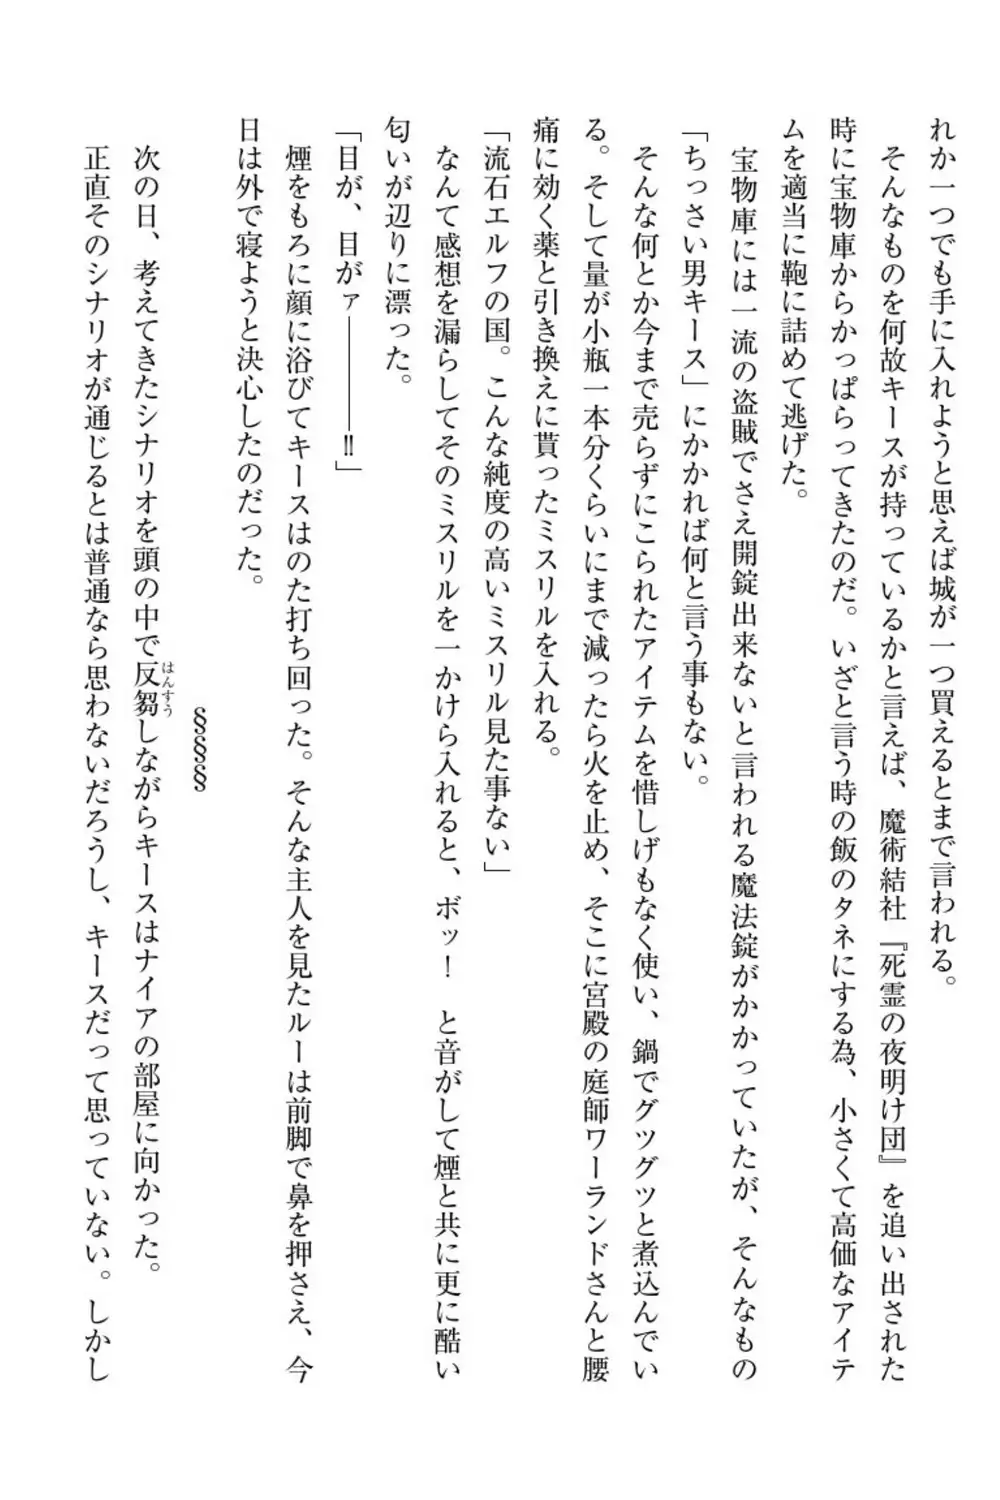 れか一つでも手に入れようと思えば城が一つ買えるとまで言われる。
そんなものを何故キースが持っているかと言えば、魔術結社『死霊の夜明け団』を追い出された
時に宝物庫からかっぱらってきたのだ。いざと言う時の飯のタネにする為、小さくて高価なアイテ
ムを適当に鞄に詰めて逃げた。
宝物庫には一流の盗賊でさえ開錠出来ないと言われる魔法錠がかかっていたが、そんなもの
「ちっさい男キース」にかかれば何と言う事もない。
そんな何とか今まで売らずにこられたアイテムを惜しげもなく使い、鍋でグツグツと煮込んでい
る。そして量が小瓶一本分くらいにまで減ったら火を止め、そこに宮殿の庭師ワーランドさんと腰
痛に効く薬と引き換えに貰ったミスリルを入れる。
「流石エルフの国。こんな純度の高いミスリル見た事ない」
なんて感想を漏らしてそのミスリルを一かけら入れると、ボッ！　と音がして煙と共に更に酷い
匂いが辺りに漂った。
「目が、目がァ――――‼」
煙をもろに顔に浴びてキースはのた打ち回った。そんな主人を見たルーは前脚で鼻を押さえ、今
日は外で寝ようと決心したのだった。
§§§§
次の日、考えてきたシナリオを頭の中で反芻（はんすう）しながらキースはナイアの部屋に向かった。
正直そのシナリオが通じるとは普通なら思わないだろうし、キースだって思っていない。しかし